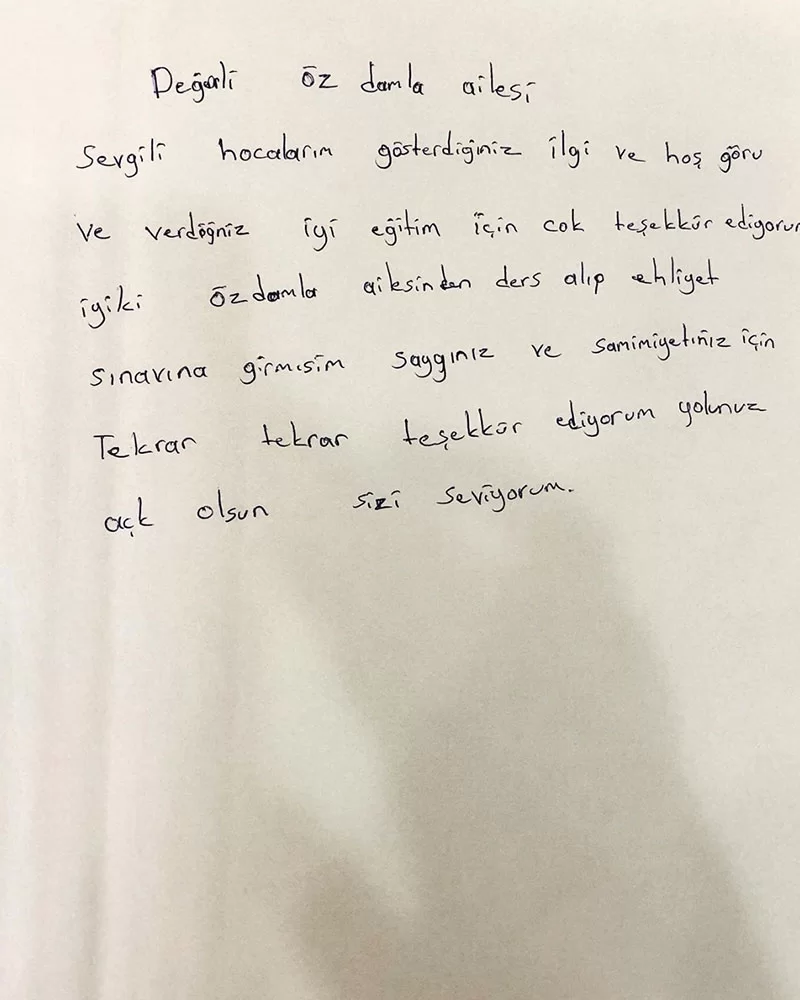 Değerli öz damla ailesi
Sevgili hocalarım gösterdiğiniz ilgi ve hoş görü
ve verdiğniz iyi eğitim için cok teşekkür ediyorum
iyiki özdamla ailesinden ders alıp ehliyet
sınavına girmişim saygınız ve samimiyetiniz için
Tekrar tekrar teşekkür ediyorum yolunuz
açk olsun sizi seviyorum.